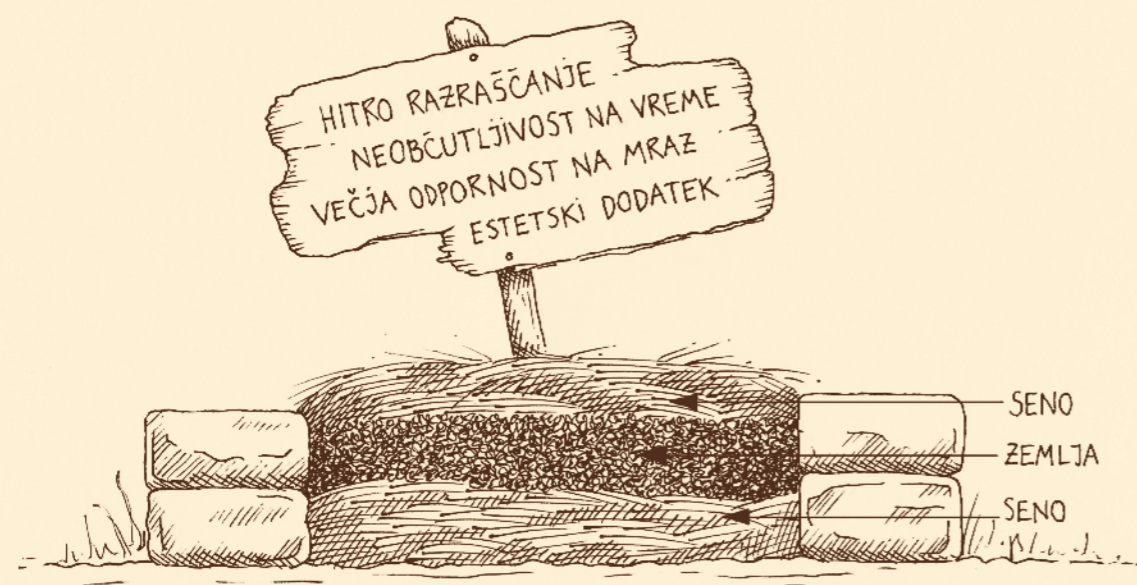 HITRO RAZRAŠČANJE
NEOBČUTLJIVOST NA VREME
VEČJA ODPORNOST NA MRAZ
ESTETSKI DODATEK
SENO
ZEMLJA
SENO